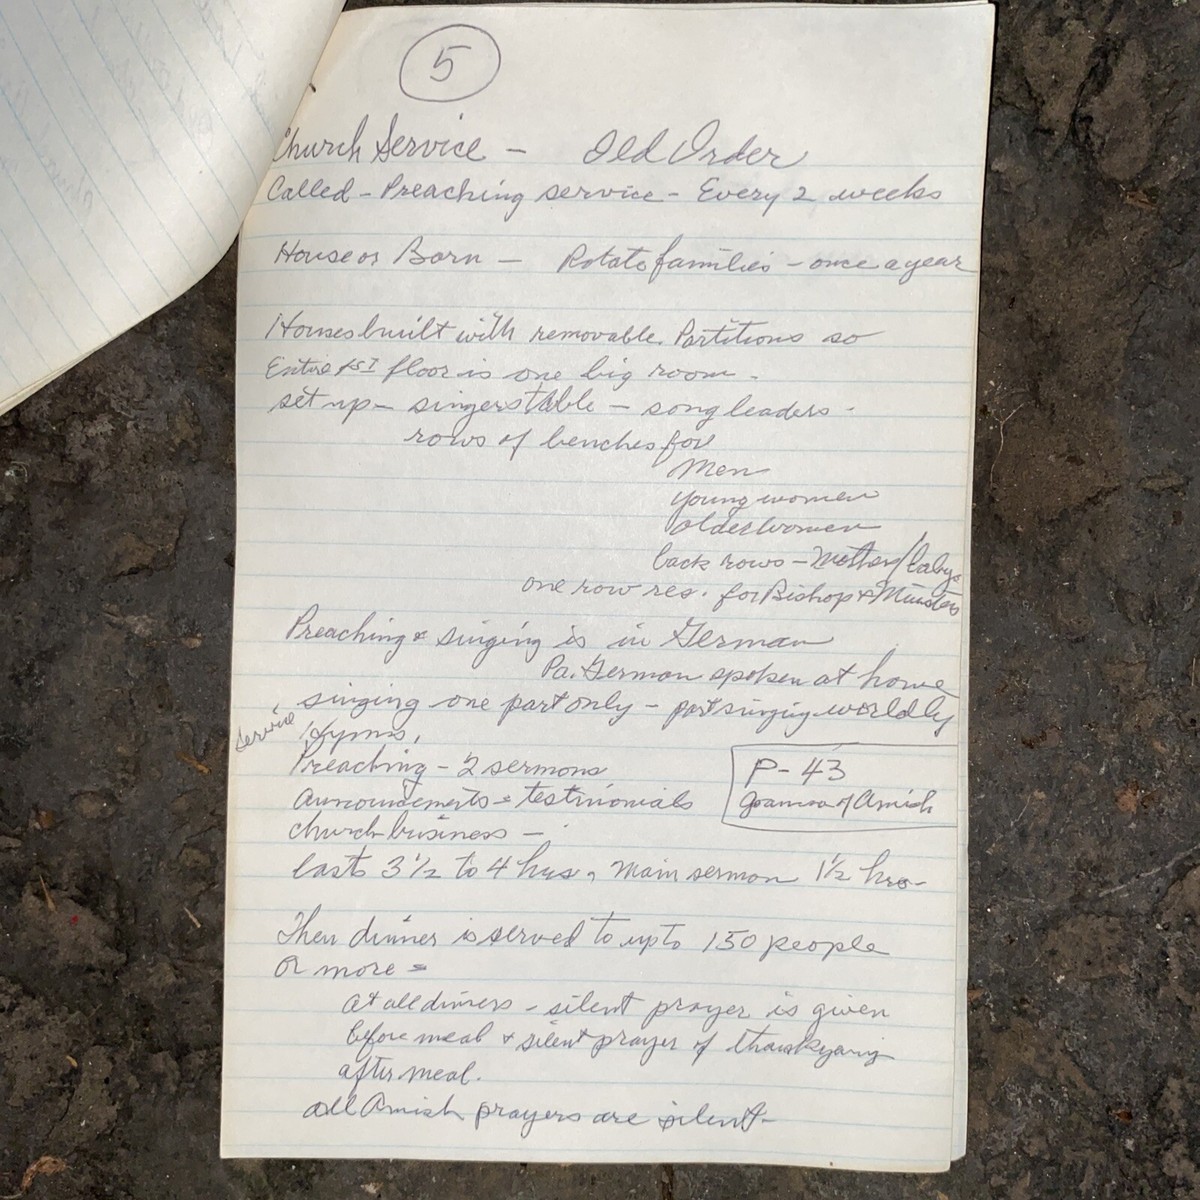 5
Church Service - Old Order
Called - Preaching service - Every 2 weeks
House or Barn - Rotate families - once a year
Houses built with removable Partitions so
Entire 1st floor is one big room -
set up - singers table - song leaders -
rows of benches for
Men
young women
older women
back rows - Mothers/babys
one row res. for Bishop & Ministers
Preaching & singing is in German
Pa. German spoken at home
singing one part only - part singing worldly
service Hymns,
Preaching - 2 sermons
announcements - testimonials
church business -
lasts 3 1/2 to 4 hrs, Main sermon 1 1/2 hrs-
P-43
of Amish
Then dinner is served to up to 150 people
or more -
at all dinners - silent prayer is given
before meal & silent prayer of thanksgiving
after meal.
all Amish prayers are silent-